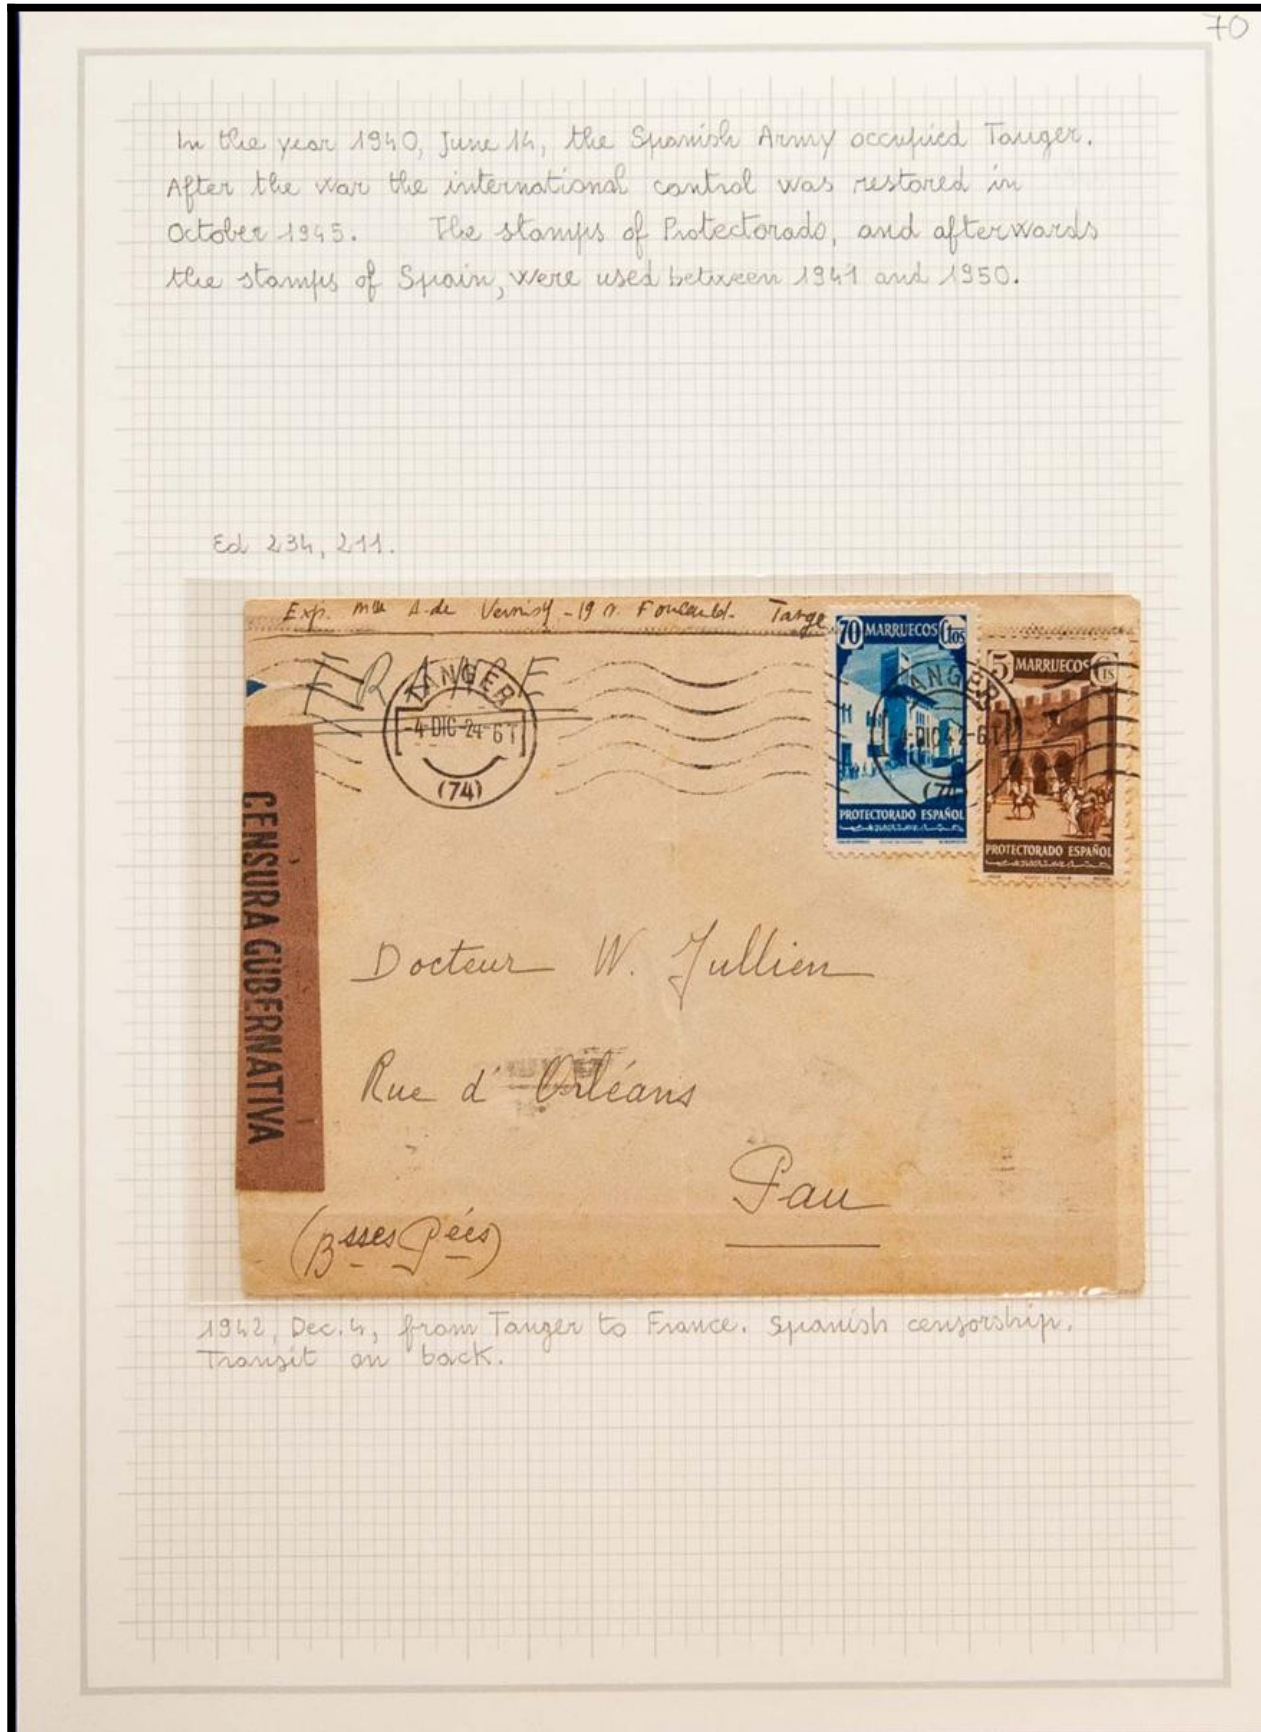 70
In the year 1940, June 14, the Spanish Army occupied Tanger.
After the war the international control was restored in
October 1945. The stamps of Protectorado, and afterwards
the stamps of Spain, were used between 1941 and 1950.
Ed 234, 211.
Exp. Mme A. de - 19 r. Foucauld - Tange
FRANCE
TANGER
4-DIC-24-6T
(74)
70 MARRUECOS Ctos
PROTECTORADO ESPAÑOL
TANGER
4-DIC42-6T
(74)
5 MARRUECOS Cts
PROTECTORADO ESPAÑOL
CENSURA GUBERNATIVA
Docteur W. Jullien
Rue d'Orléans
Pau
(Bsses Pées)
1942, Dec. 4, from Tanger to France. Spanish censorship.
Transit on back.